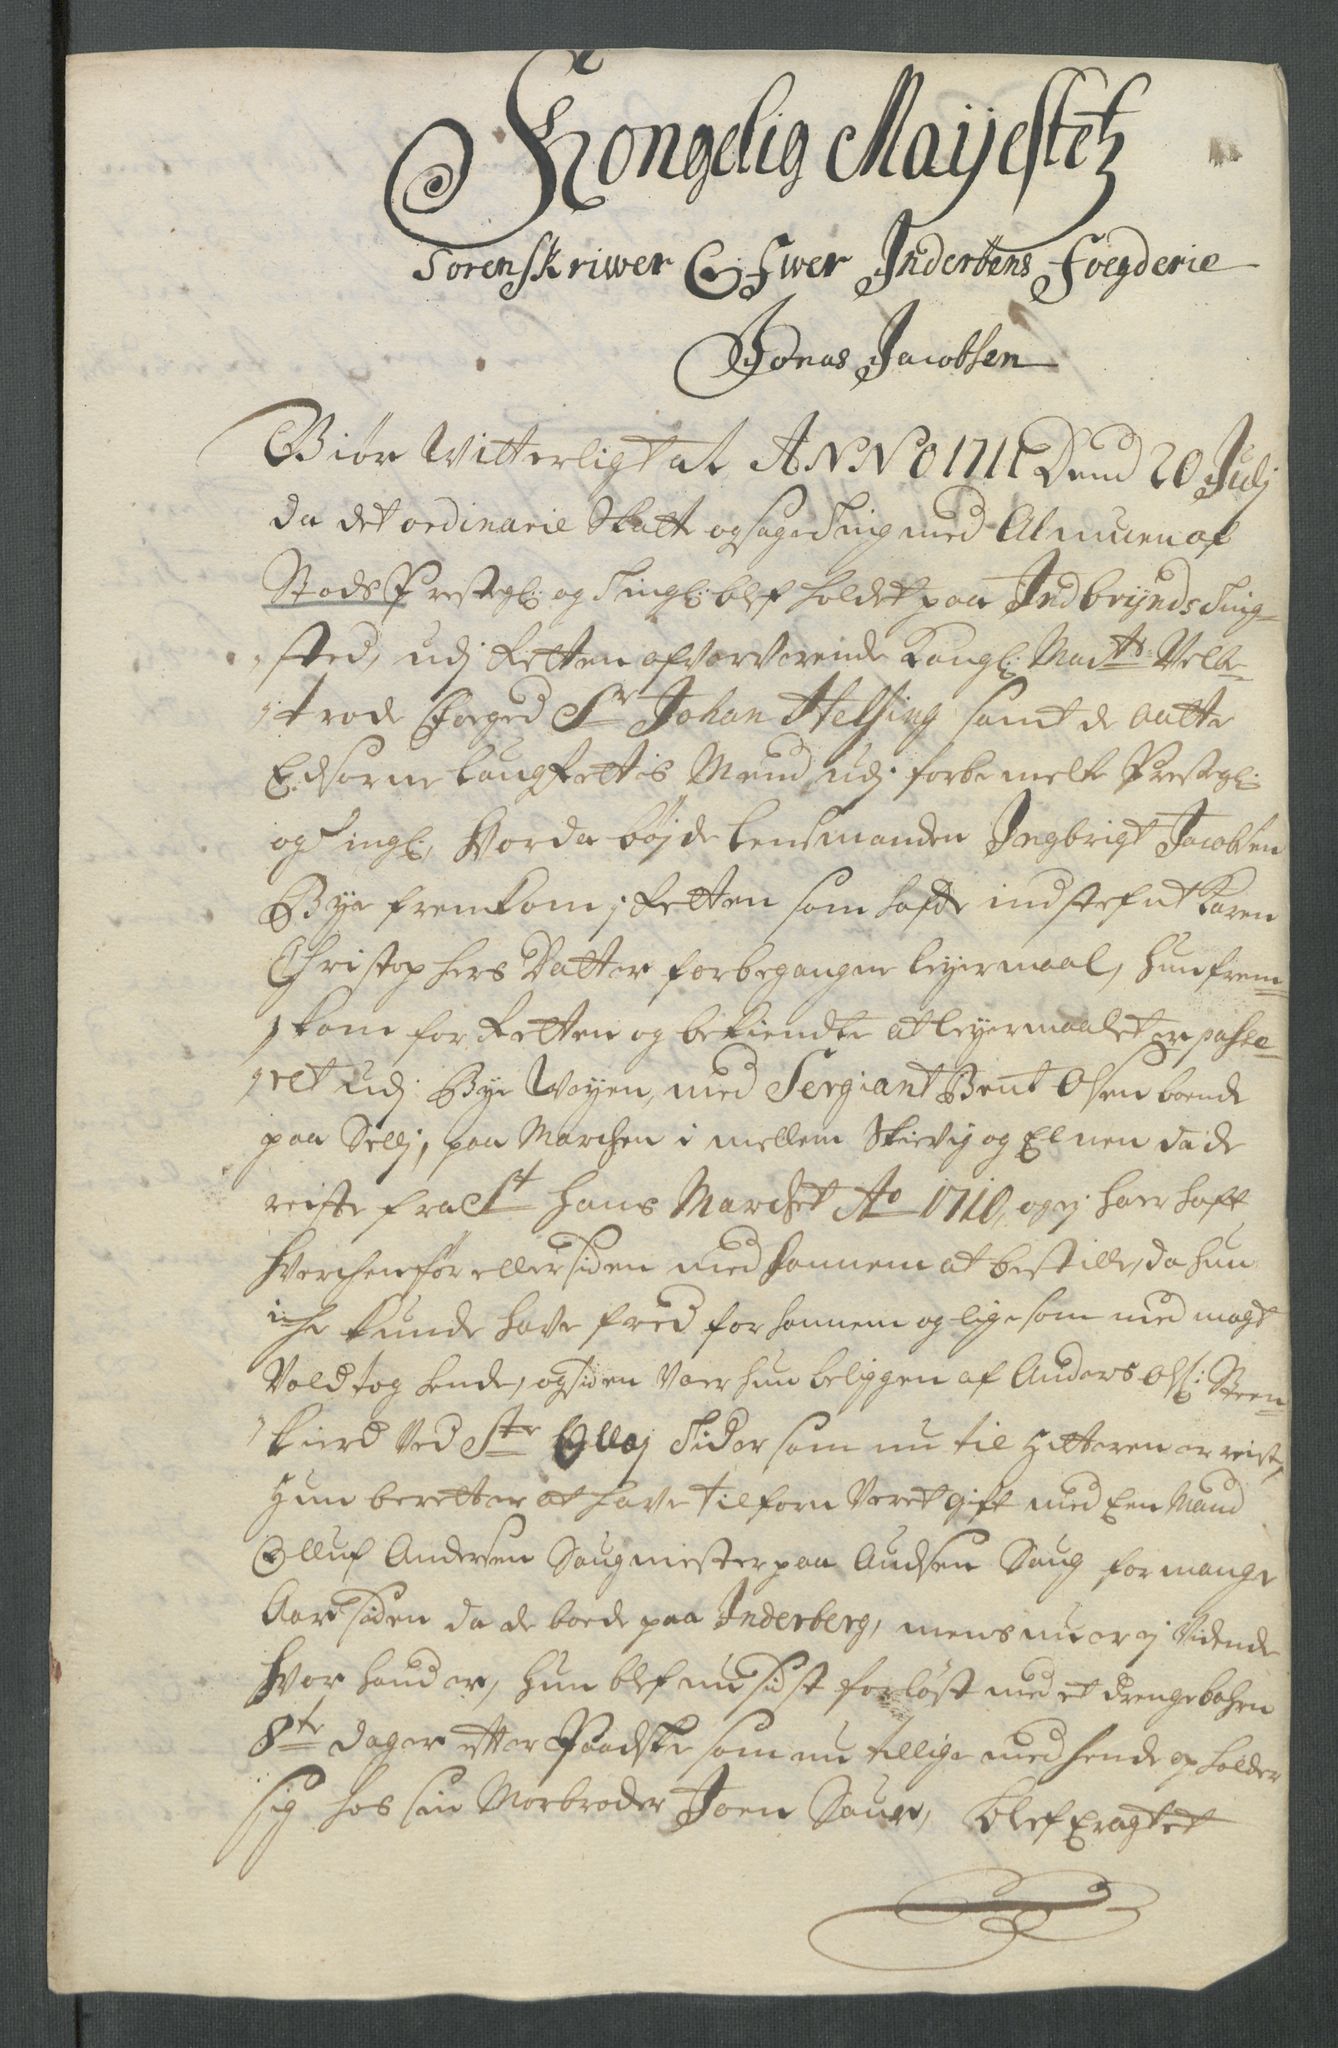 Kongelig Maijestetz
Sorenskriwer Ofwer Inderöens Foegderie
Jonas Jacobsen
Giör Witterligt at ANNO 1711 Dend 20 Julj
da det ordinarie Skatte og Sage Ting med Almuen af
Stods Prestegl: og Tingl: blef holdet paa Indbrynds Ting-
sted, udj Retten ofverværende Kongl: Maÿts Velbe-
trode Foeged Sr Johan Helsing samt de aatte
Edsorne laugRettis Mend udj forbemelte Prestegl:
og Tingl, Hvorda böjde lensmanden Ingbrigt Jacobsen
Bye fremkom i Retten som hafde indstefnt Karen
Christophers Datter for begangne leyermaal, hun frem-
kom for Retten og bekiendte at leyermaalet er passe-
ret udj Bye Weyen, med Sergiant Bent Olsen boende
paa Sellj, paa Marchen i mellem Skievig og Elnen da de
reiste fra St Hans Marchet Ao 1710, og ej haer haft
hverchen för eller siden med hannem at bestille, da hun
iche kunde have fred for hannem og lige som med magt
Voldtog hende, og siden Vaer hun beliggen af Anders Ols: Steen-
kierd Ved Ste Ollaj Tider som nu til Hitteren er reist,
Hun beretter at have tilforn Veret gift med Een Mand
Olluf Andersen Saugmester paa Audsen Saug for mange
Aar siden da de boede paa Inderberg, mens nu er ej Vidende
hvor hand er, hun blef nu sidst forlöst med et drengebahrn
8te dager etter Paadske som nu tillige med hende opholder
sig hos sin Morbroder Joen Saur, Blef Eragtet